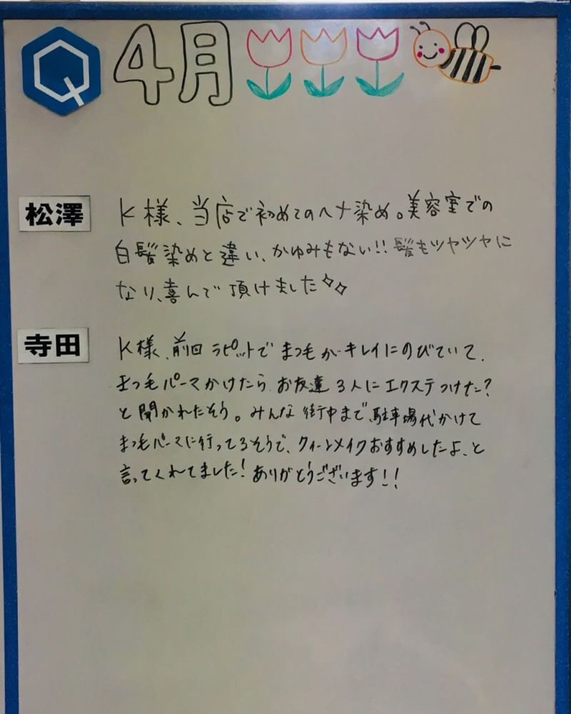 Q 4月
松澤
K様、当店で初めてのヘナ染め。美容室での
白髪染めと違い、かゆみもない!!髪もツヤツヤに
なり、喜んで頂けました
寺田
K様、前回ラピットでまつ毛がキレイにのびていて、
まつ毛パーマかけたらお友達3人にエクステつけた?
と聞かれたそう。みんな街中まで駐車場代かけて
まつ毛パーマに行ってるそうで、クイーンメイクおすすめしたよ、と
言ってくれてました!ありがとうございます!!